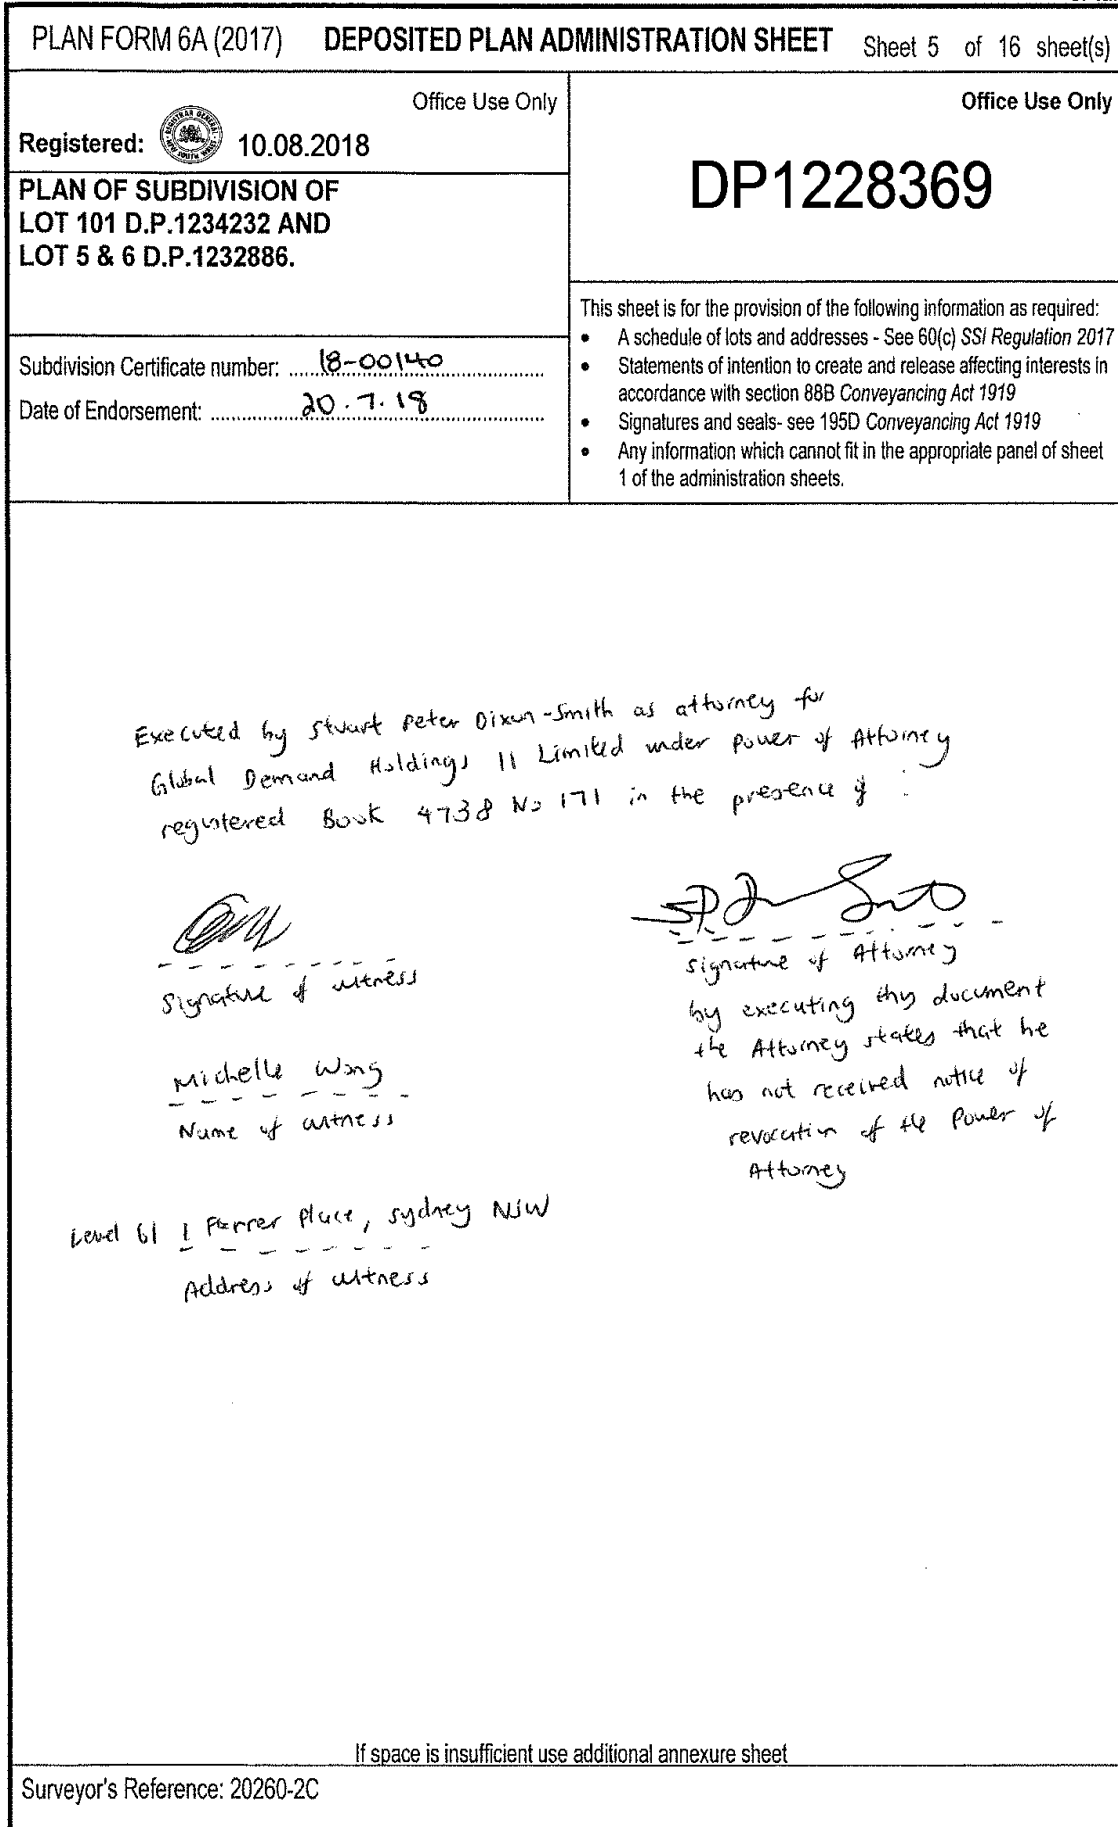 PLAN FORM 6A (2017) DEPOSITED PLAN ADMINISTRATION SHEET Sheet 5 of 16 sheet(s)
Office Use Only
Registered: 10.08.2018
PLAN OF SUBDIVISION OF
LOT 101 D.P.1234232 AND
LOT 5 & 6 D.P.1232886.
Subdivision Certificate number: 18-00140
Date of Endorsement: 20.7.18
Office Use Only
DP1228369
This sheet is for the provision of the following information as required:
• A schedule of lots and addresses - See 60(c) SSI Regulation 2017
• Statements of intention to create and release affecting interests in
accordance with section 88B Conveyancing Act 1919
• Signatures and seals- see 195D Conveyancing Act 1919
• Any information which cannot fit in the appropriate panel of sheet
1 of the administration sheets.
Executed by Stuart Peter Dixon-Smith as attorney for
Global Demand Holdings II Limited under Power of Attorney
registered Book 4738 No 171 in the presence of :
Signature of witness
Michelle Wong
Name of witness
Level 61 1 Farrer Place, Sydney NSW
Address of witness
Signature of Attorney
by executing this document
the Attorney states that he
has not received notice of
revocation of the Power of
Attorney
If space is insufficient use additional annexure sheet
Surveyor's Reference: 20260-2C